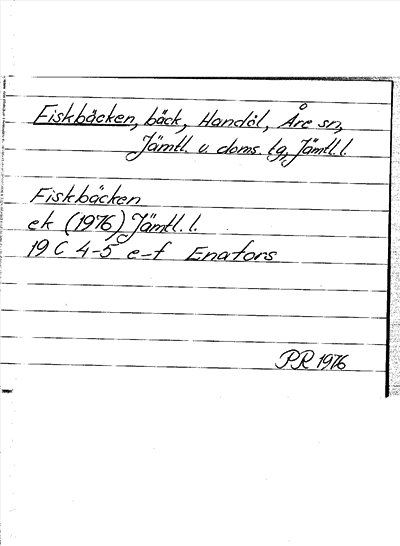 Fiskbäcken, bäck, Handöl, Åre sn,
Jämtl. v. doms. lg, Jämtl. l.
Fiskbäcken
ek (1976) Jämtl. l.
19 C 4-5 e-f Enafors
PR 1976